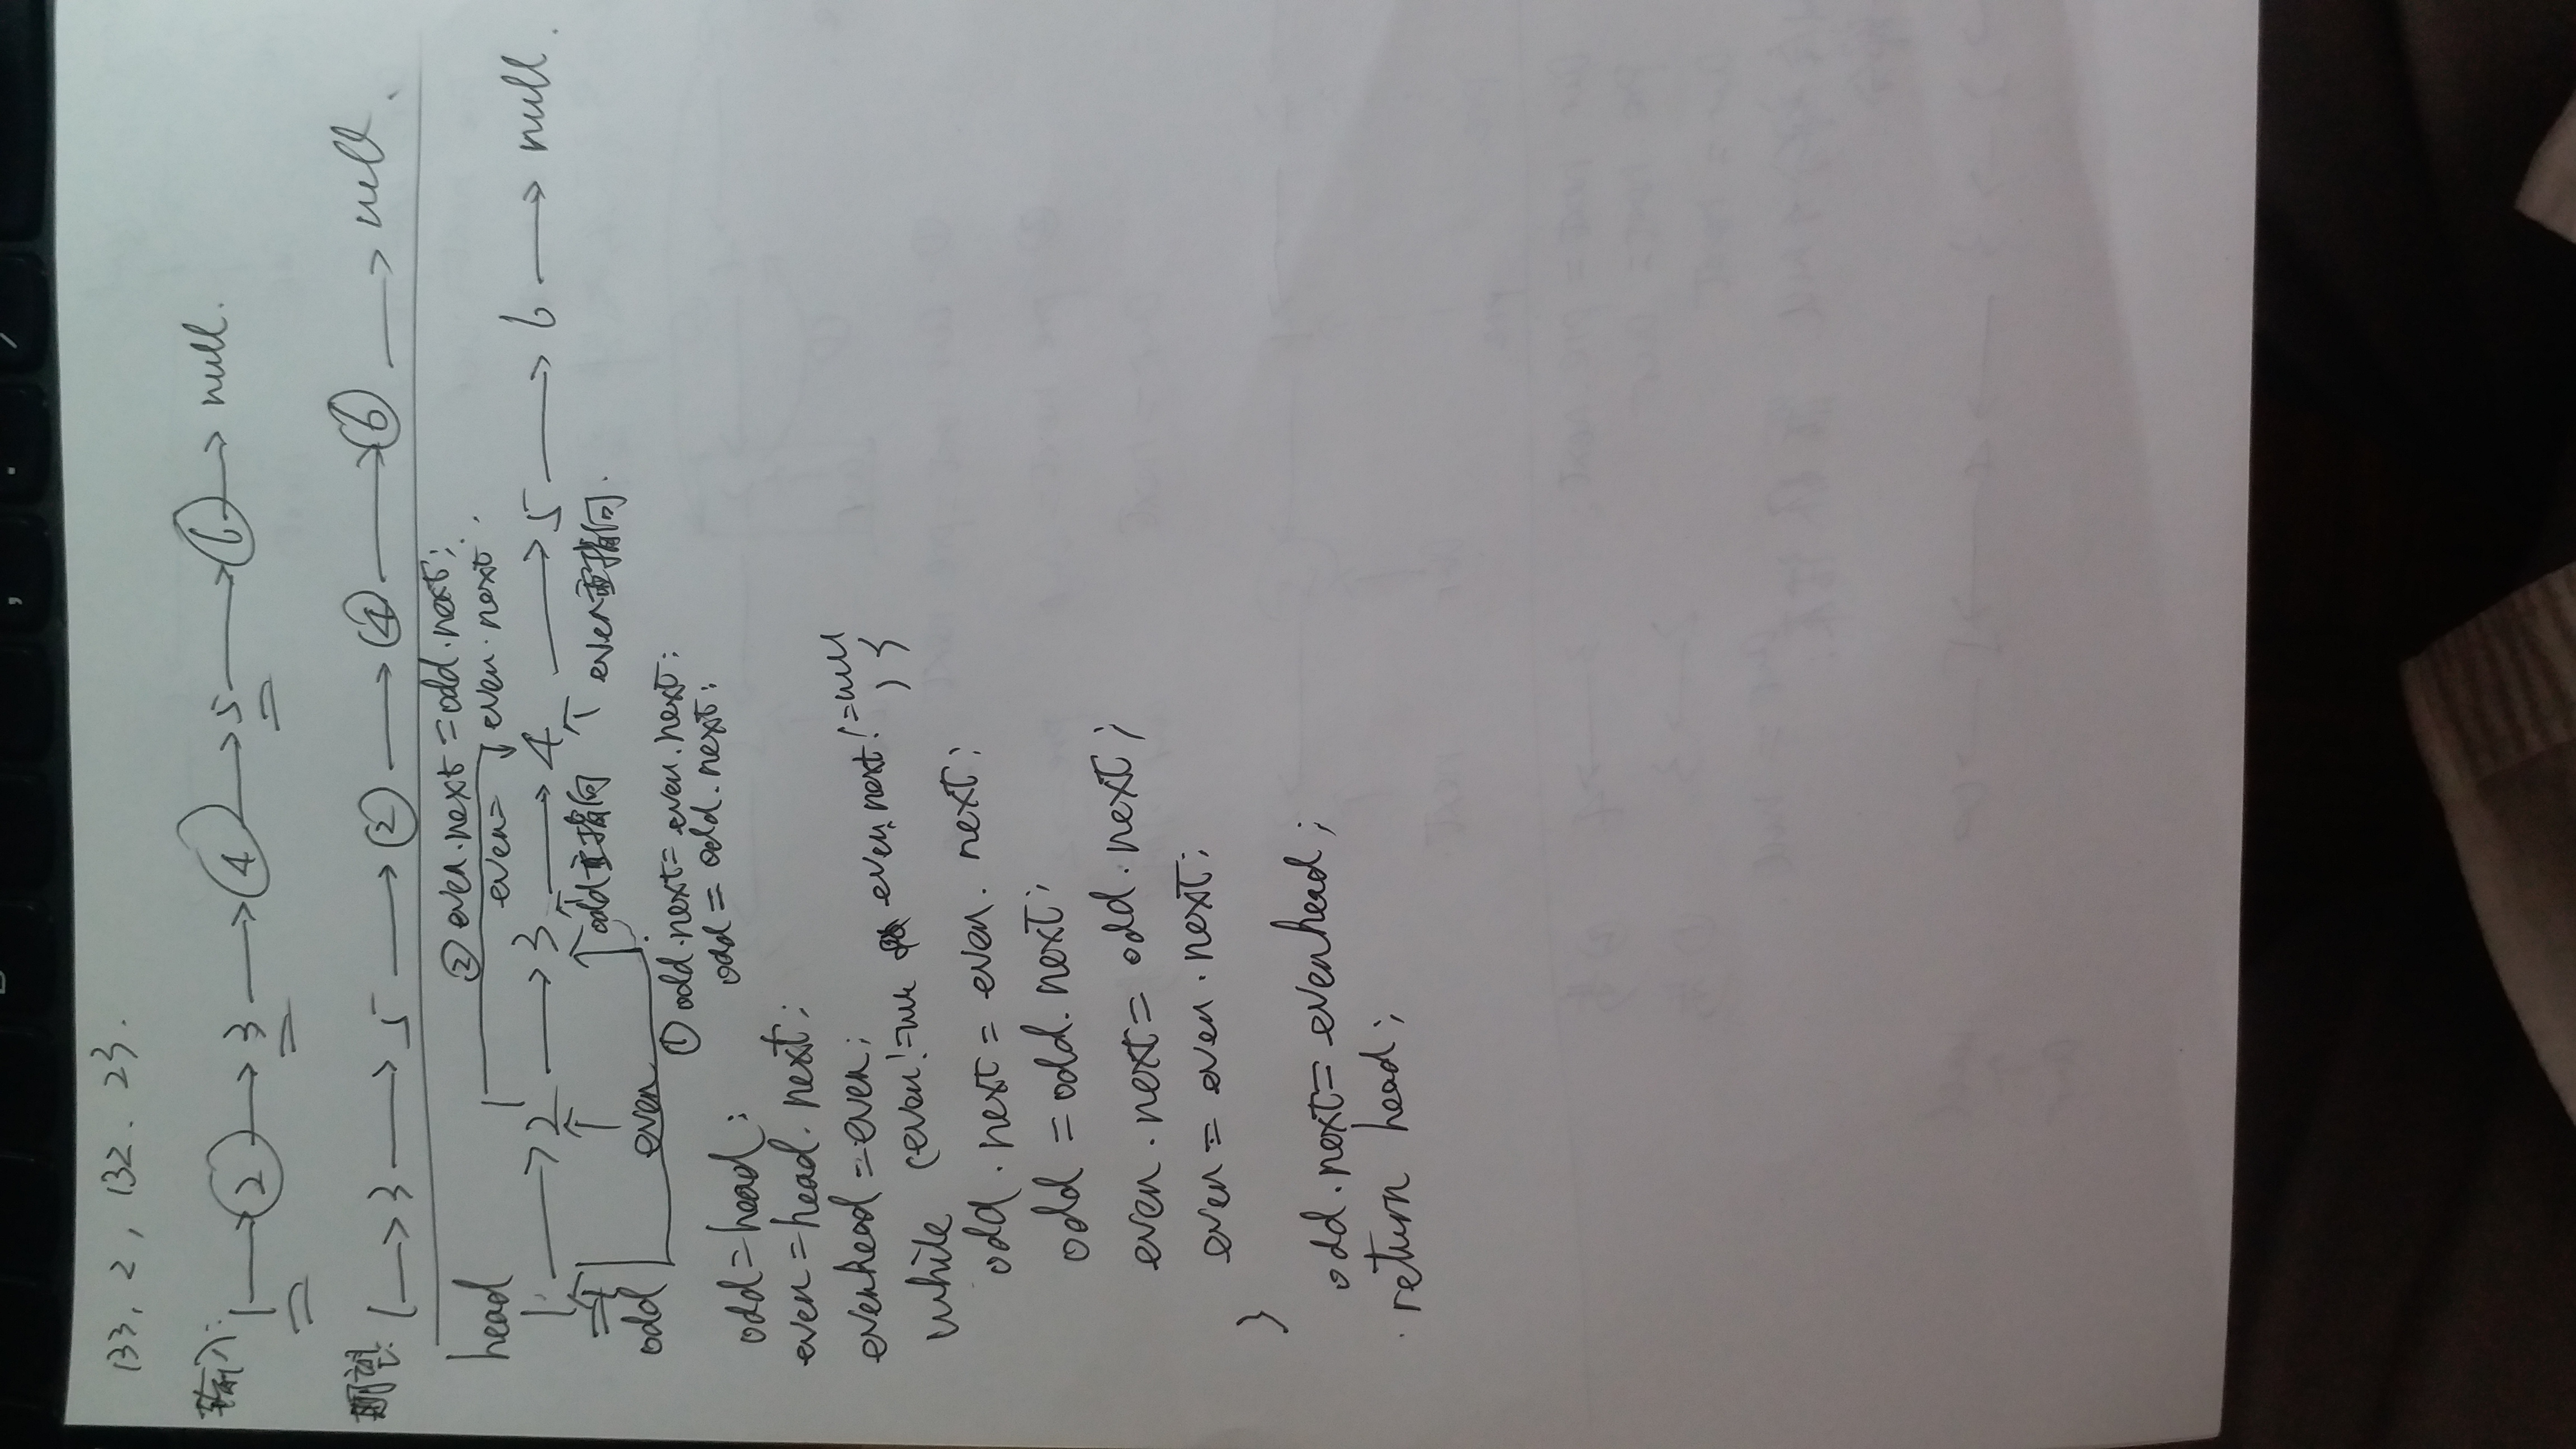 133, 2, 132. 23.
输入: 1 → ② → 3 → ④ → 5 → ⑥ → null.
期望: 1 → 3 → 5 → ② → ④ → ⑥ → null.
② even.next = odd.next;
head
even = even.next
1 → 2 → 3 → 4 → 5 → 6 → null.
odd重指向 even重指向.
odd even
① odd.next = even.next;
odd = odd.next;
odd = head;
even = head.next;
evenhead = even;
while (even != null && even.next != null
) {
odd.next = even.next;
odd = odd.next;
even.next = odd.next;
even = even.next;
}
odd.next = evenhead;
return head;